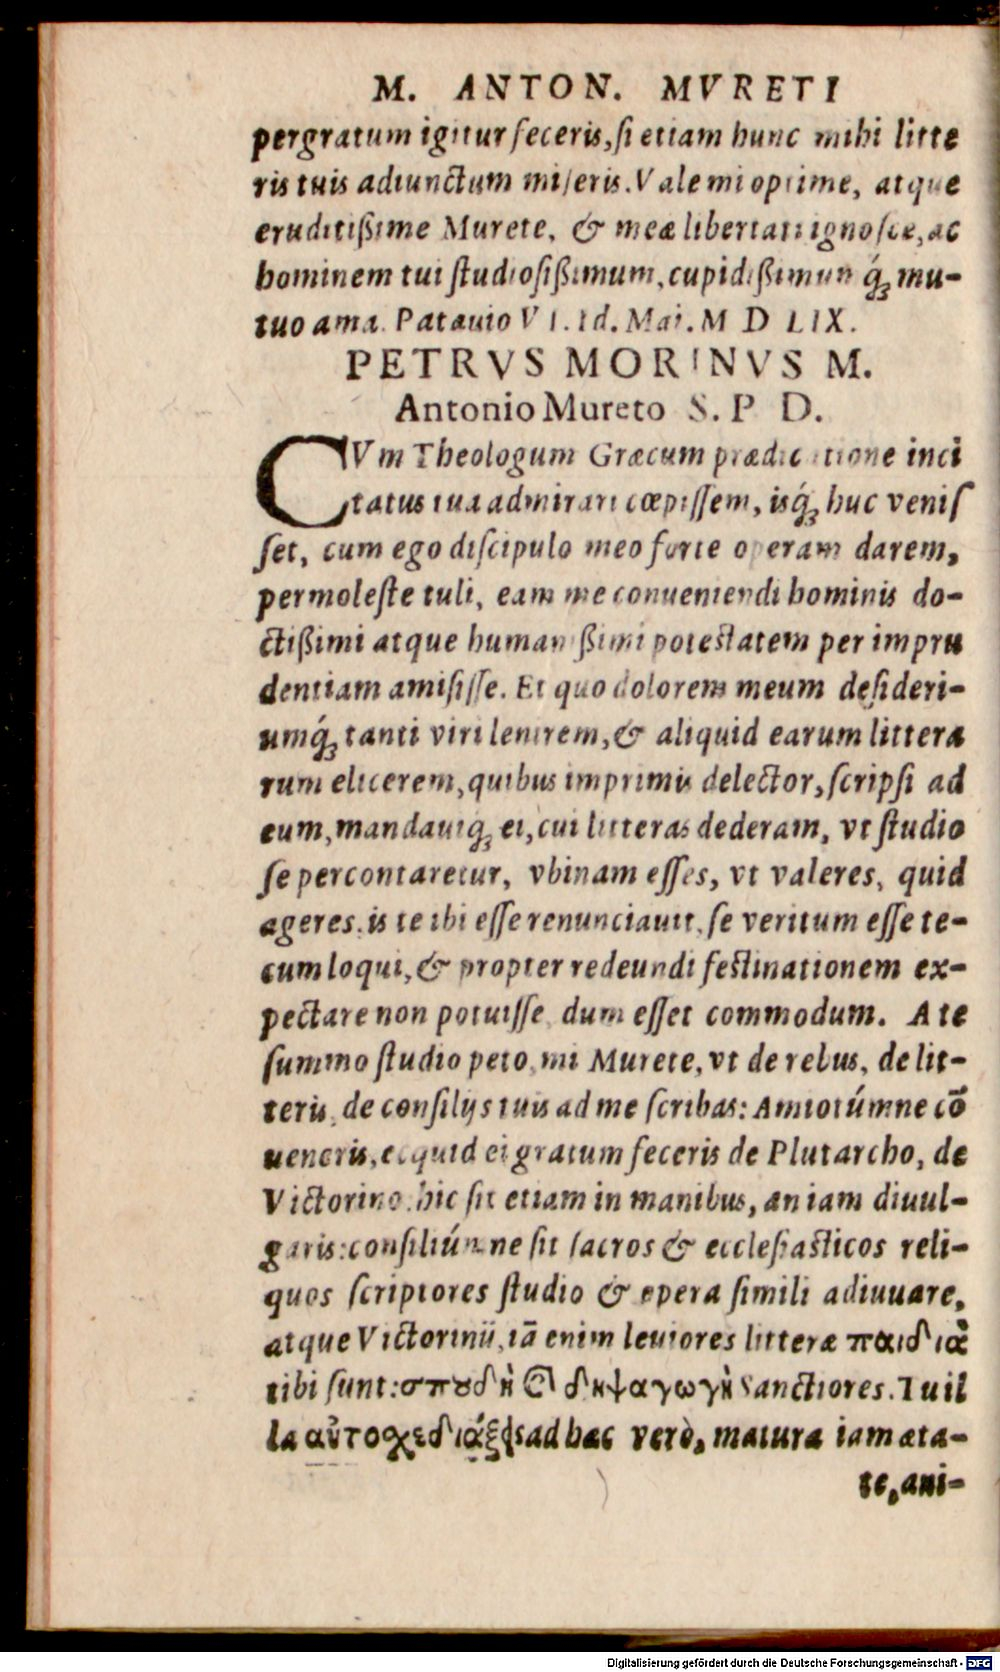 M. ANTON. MVRETI
pergratum igitur feceris, ſi etiam hunc mihi litte
ris tuis adiunctum miſeris. Vale mi optime, atque
eruditißime Murete, & meæ libertati ignoſce, ac
hominem tui ſtudioſißimum, cupidißimum q́; mu-
tuo ama. Patauio VI. Id. Mai. M D LIX.
PETRVS MORINVS M.
Antonio Mureto S. P D.
CVm Theologum Græcum prædicatione inci
tatus tua admirari cœpiſſem, isq́; huc veniſ
ſet, cum ego diſcipulo meo forte operam darem,
permoleſte tuli, eam me conueniendi hominis do-
ctißimi atque humanißimi poteſtatem per impru
dentiam amiſiſſe. Et quo dolorem meum deſideri-
umq́; tanti viri lenirem, & aliquid earum littera
rum elicerem, quibus imprimis delector, ſcripſi ad
eum, mandauiq; ei, cui litteras dederam, vt ſtudio
ſe percontaretur, vbinam eſſes, vt valeres, quid
ageres. is te ibi eſſe renunciauit, ſe veritum eſſe te-
cum loqui, & propter redeundi feſtinationem ex-
pectare non potuiſſe, dum eſſet commodum. A te
ſummo ſtudio peto, mi Murete, vt de rebus, de lit-
teris, de conſilijs tuis ad me ſcribas: Amiotúmne cõ
ueneris, ecquid ei gratum feceris de Plutarcho, de
Victorino. hic ſit etiam in manibus, an iam diuul-
garis: conſiliúmne ſit ſacros & eccleſiaſticos reli-
quos ſcriptores ſtudio & opera ſimili adiuuare,
atque Victorinũ, iã enim leuiores litteræ παιδιὰ
tibi ſunt: σπουδὴ καὶ δηψαγωγὴ Sanctiores. Tu il
la αὐτοχεδιάξεις ad hæc verò, matura iam æta-
te, ani-
Digitalisierung gefördert durch die Deutsche Forschungsgemeinschaft - DFG